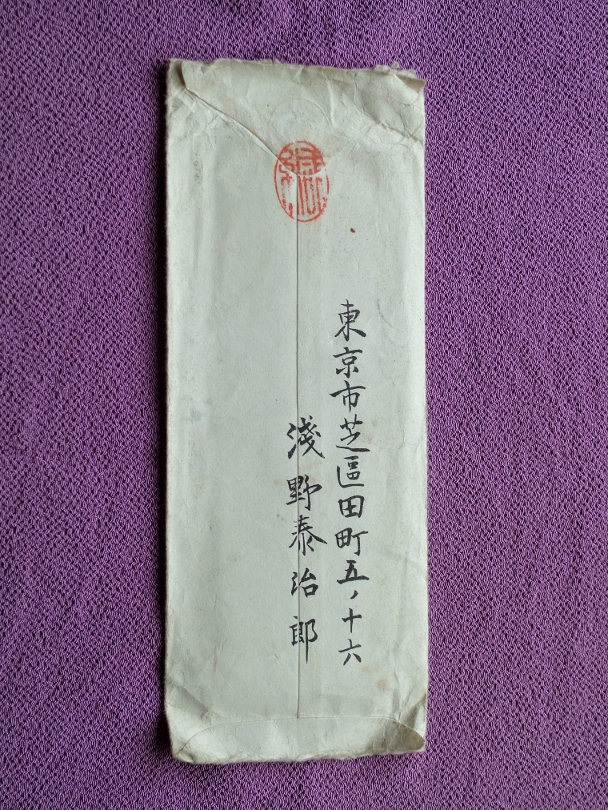 東京市芝區田町五ノ十六
淺野泰治郎